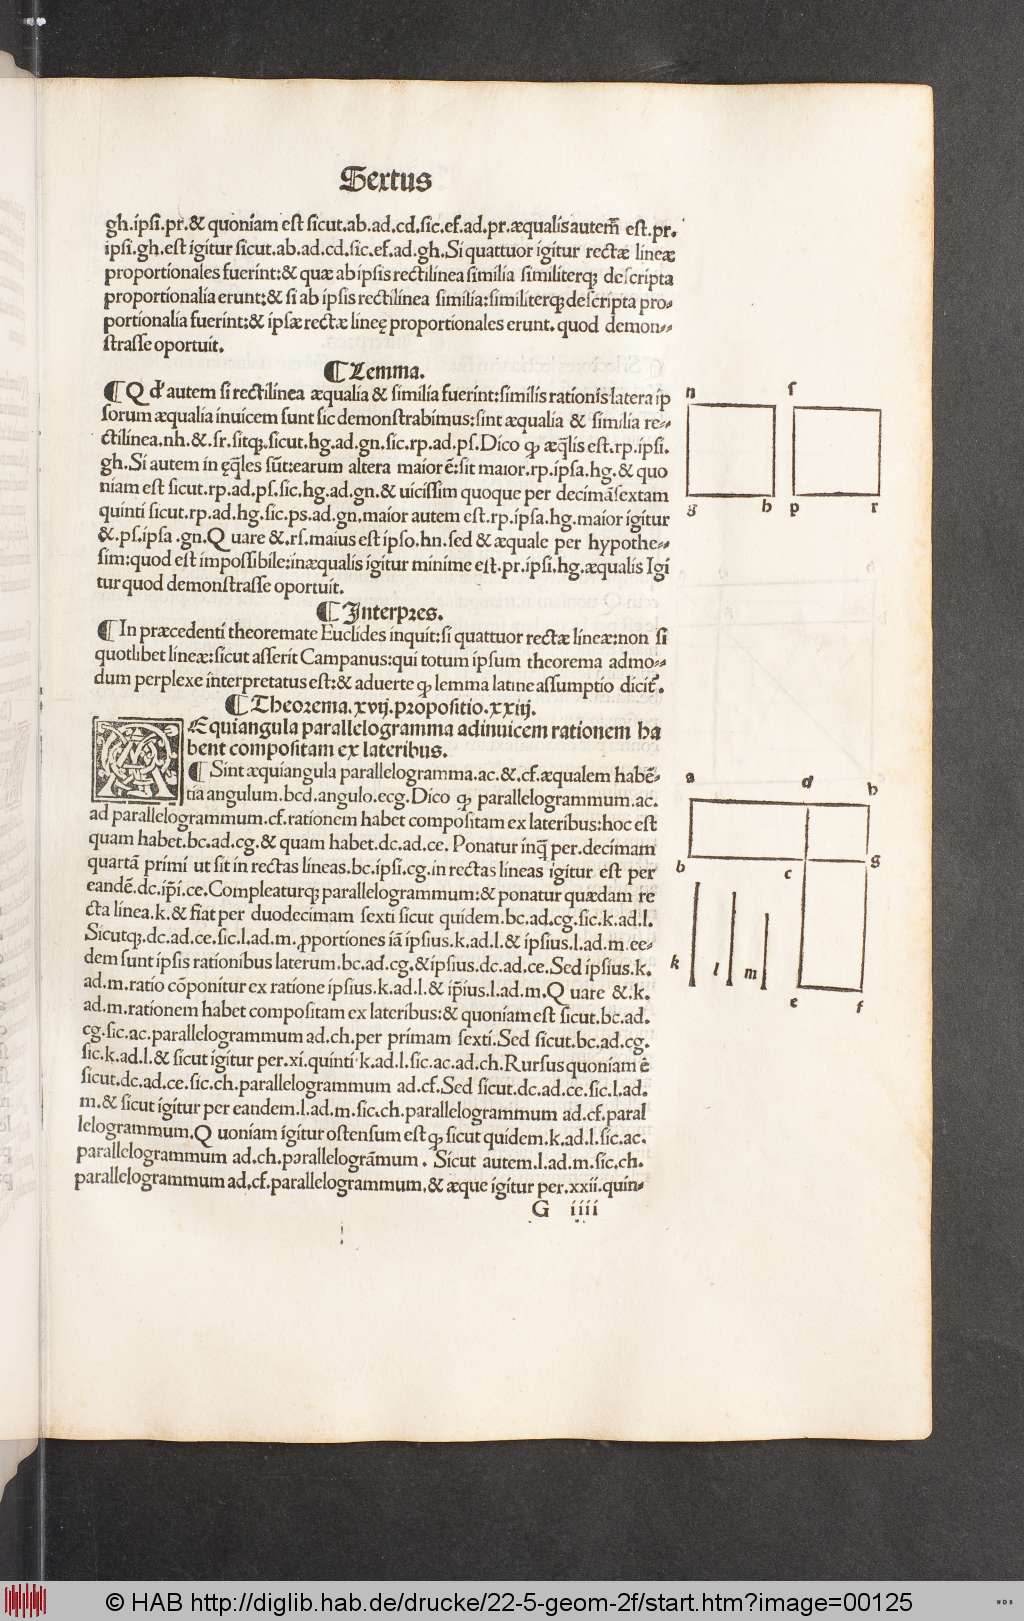 Sextus
gh.ipsi.pr.& quoniam est sicut.ab.ad.cd.sic.ef.ad.pr.æqualis autem̃ est.pr.
ipsi.gh.est igitur sicut.ab.ad.cd.sic.ef.ad.gh.Si quattuor igitur rectæ lineæ
proportionales fuerint:& quæ ab ipsis rectilinea similia similiterqꝫ descripta
proportionalia erunt:& si ab ipsis rectilinea similia:similiterqꝫ descripta pro⸗
portionalia fuerint:& ipsæ rectæ lineę proportionales erunt.quod demon⸗
strasse oportuit.
¶Lemma.
¶Q d' autem si rectilinea æqualia & similia fuerint:similis rationis latera ip
sorum æqualia inuicem sunt sic demonstrabimus:sint æqualia & similia re⸗
ctilinea.nh.&.sr.sitqꝫ.sicut.hg.ad.gn.sic.rp.ad.ps.Dico ꝙ æq̃lis est.rp.ipsi.
gh.Si autem in ęq̃les sũt:earum altera maior ẽ:sit maior.rp.ipsa.hg.& quo
niam est sicut.rp.ad.ps.sic.hg.ad.gn.& uicissim quoque per decimãsextam
quinti sicut.rp.ad.hg.sic.ps.ad.gn.maior autem est.rp.ipsa.hg.maior igitur
&.ps.ipsa .gn.Q uare &.rs.maius est ipso.hn.sed & æquale per hypothe⸗
sim:quod est impossibile:inæqualis igitur minime est.pr.ipsi.hg.æqualis Igi
tur quod demonstrasse oportuit.
¶Interpres.
¶In præcedenti theoremate Euclides inquit:si quattuor rectæ lineæ:non si
quotlibet lineæ:sicut asserit Campanus:qui totum ipsum theorema admo⸗
dum perplexe interpretatus est:& aduerte ꝙ lemma latine assumptio dicit̃.
¶Theorema.xvij.propositio.xxiij.
AEquiangula parallelogramma adinuicem rationem ha
bent compositam ex lateribus.
¶Sint æquiangula parallelogramma.ac.&.cf.æqualem habẽ⸗
tia angulum.bcd.angulo.ecg.Dico ꝙ parallelogrammum.ac.
ad parallelogrammum.cf.rationem habet compositam ex lateribus:hoc est
quam habet.bc.ad.cg.& quam habet.dc.ad.ce. Ponatur inq̃ per.decimam
quartã primi ut sit in rectas lineas.bc.ipsi.cg.in rectas lineas igitur est per
eandẽ.dc.ip̃i.ce.Compleaturqꝫ parallelogrammum:& ponatur quædam re
cta linea.k.& fiat per duodecimam sexti sicut quidem.bc.ad.cg.sic.k.ad.l.
Sicutqꝫ.dc.ad.ce.sic.l.ad.m.ꝓportiones iã ipsius.k.ad.l.& ipsius.l.ad.m.ee⸗
dem sunt ipsis rationibus laterum.bc.ad.cg.&ipsius.dc.ad.ce.Sed ipsius.k.
ad.m.ratio cõponitur ex ratione ipsius.k.ad.l.& ip̃ius.l.ad.m.Q uare &.k.
ad.m.rationem habet compositam ex lateribus:& quoniam est sicut.bc.ad.
cg.sic.ac.parallelogrammum ad.ch.per primam sexti.Sed sicut.bc.ad.cg.
sic.k.ad.l.& sicut igitur per.xi.quinti.k.ad.l.sic.ac.ad.ch.Rursus quoniam ẽ
sicut.dc.ad.ce.sic.ch.parallelogrammum ad.cf.Sed sicut.dc.ad.ce.sic.l.ad.
m.& sicut igitur per eandem.l.ad.m.sic.ch.parallelogrammum ad.cf.paral
lelogrammum.Q uoniam igitur ostensum est ꝙ sicut quidem.k.ad.l.sic.ac.
parallelogrammum ad.ch.parallelogrãmum. Sicut autem.l.ad.m.sic.ch.
parallelogrammum ad.cf.parallelogrammum,& æque igitur per.xxii.quin⸗
G iiii
n s
g h p r
a d h
b c g
k l m
e f
© HAB http://diglib.hab.de/drucke/22-5-geom-2f/start.htm?image=00125